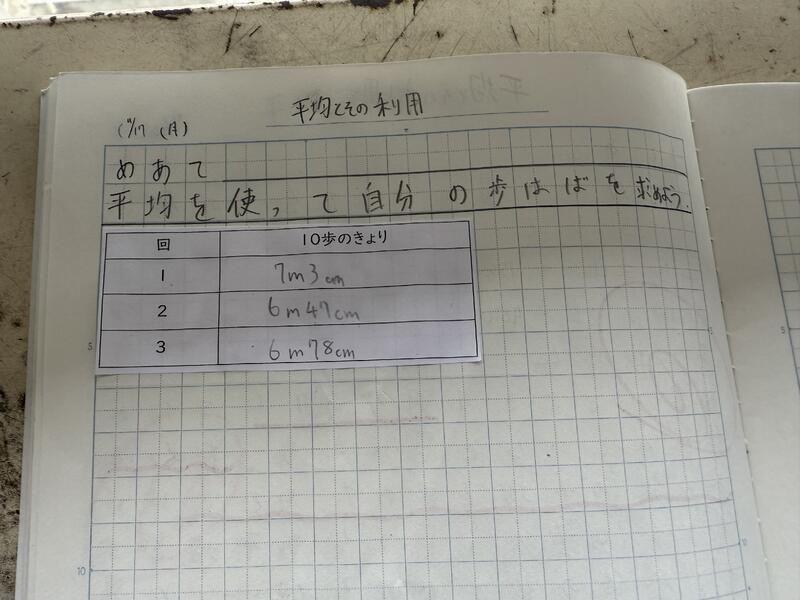 平均とその利用
(11/17 (月)
めあて
平均を使って自分の歩はばを求めよう.
回 10歩のきょり
1 7m3cm
2 6m47cm
3 6m78cm
5
10